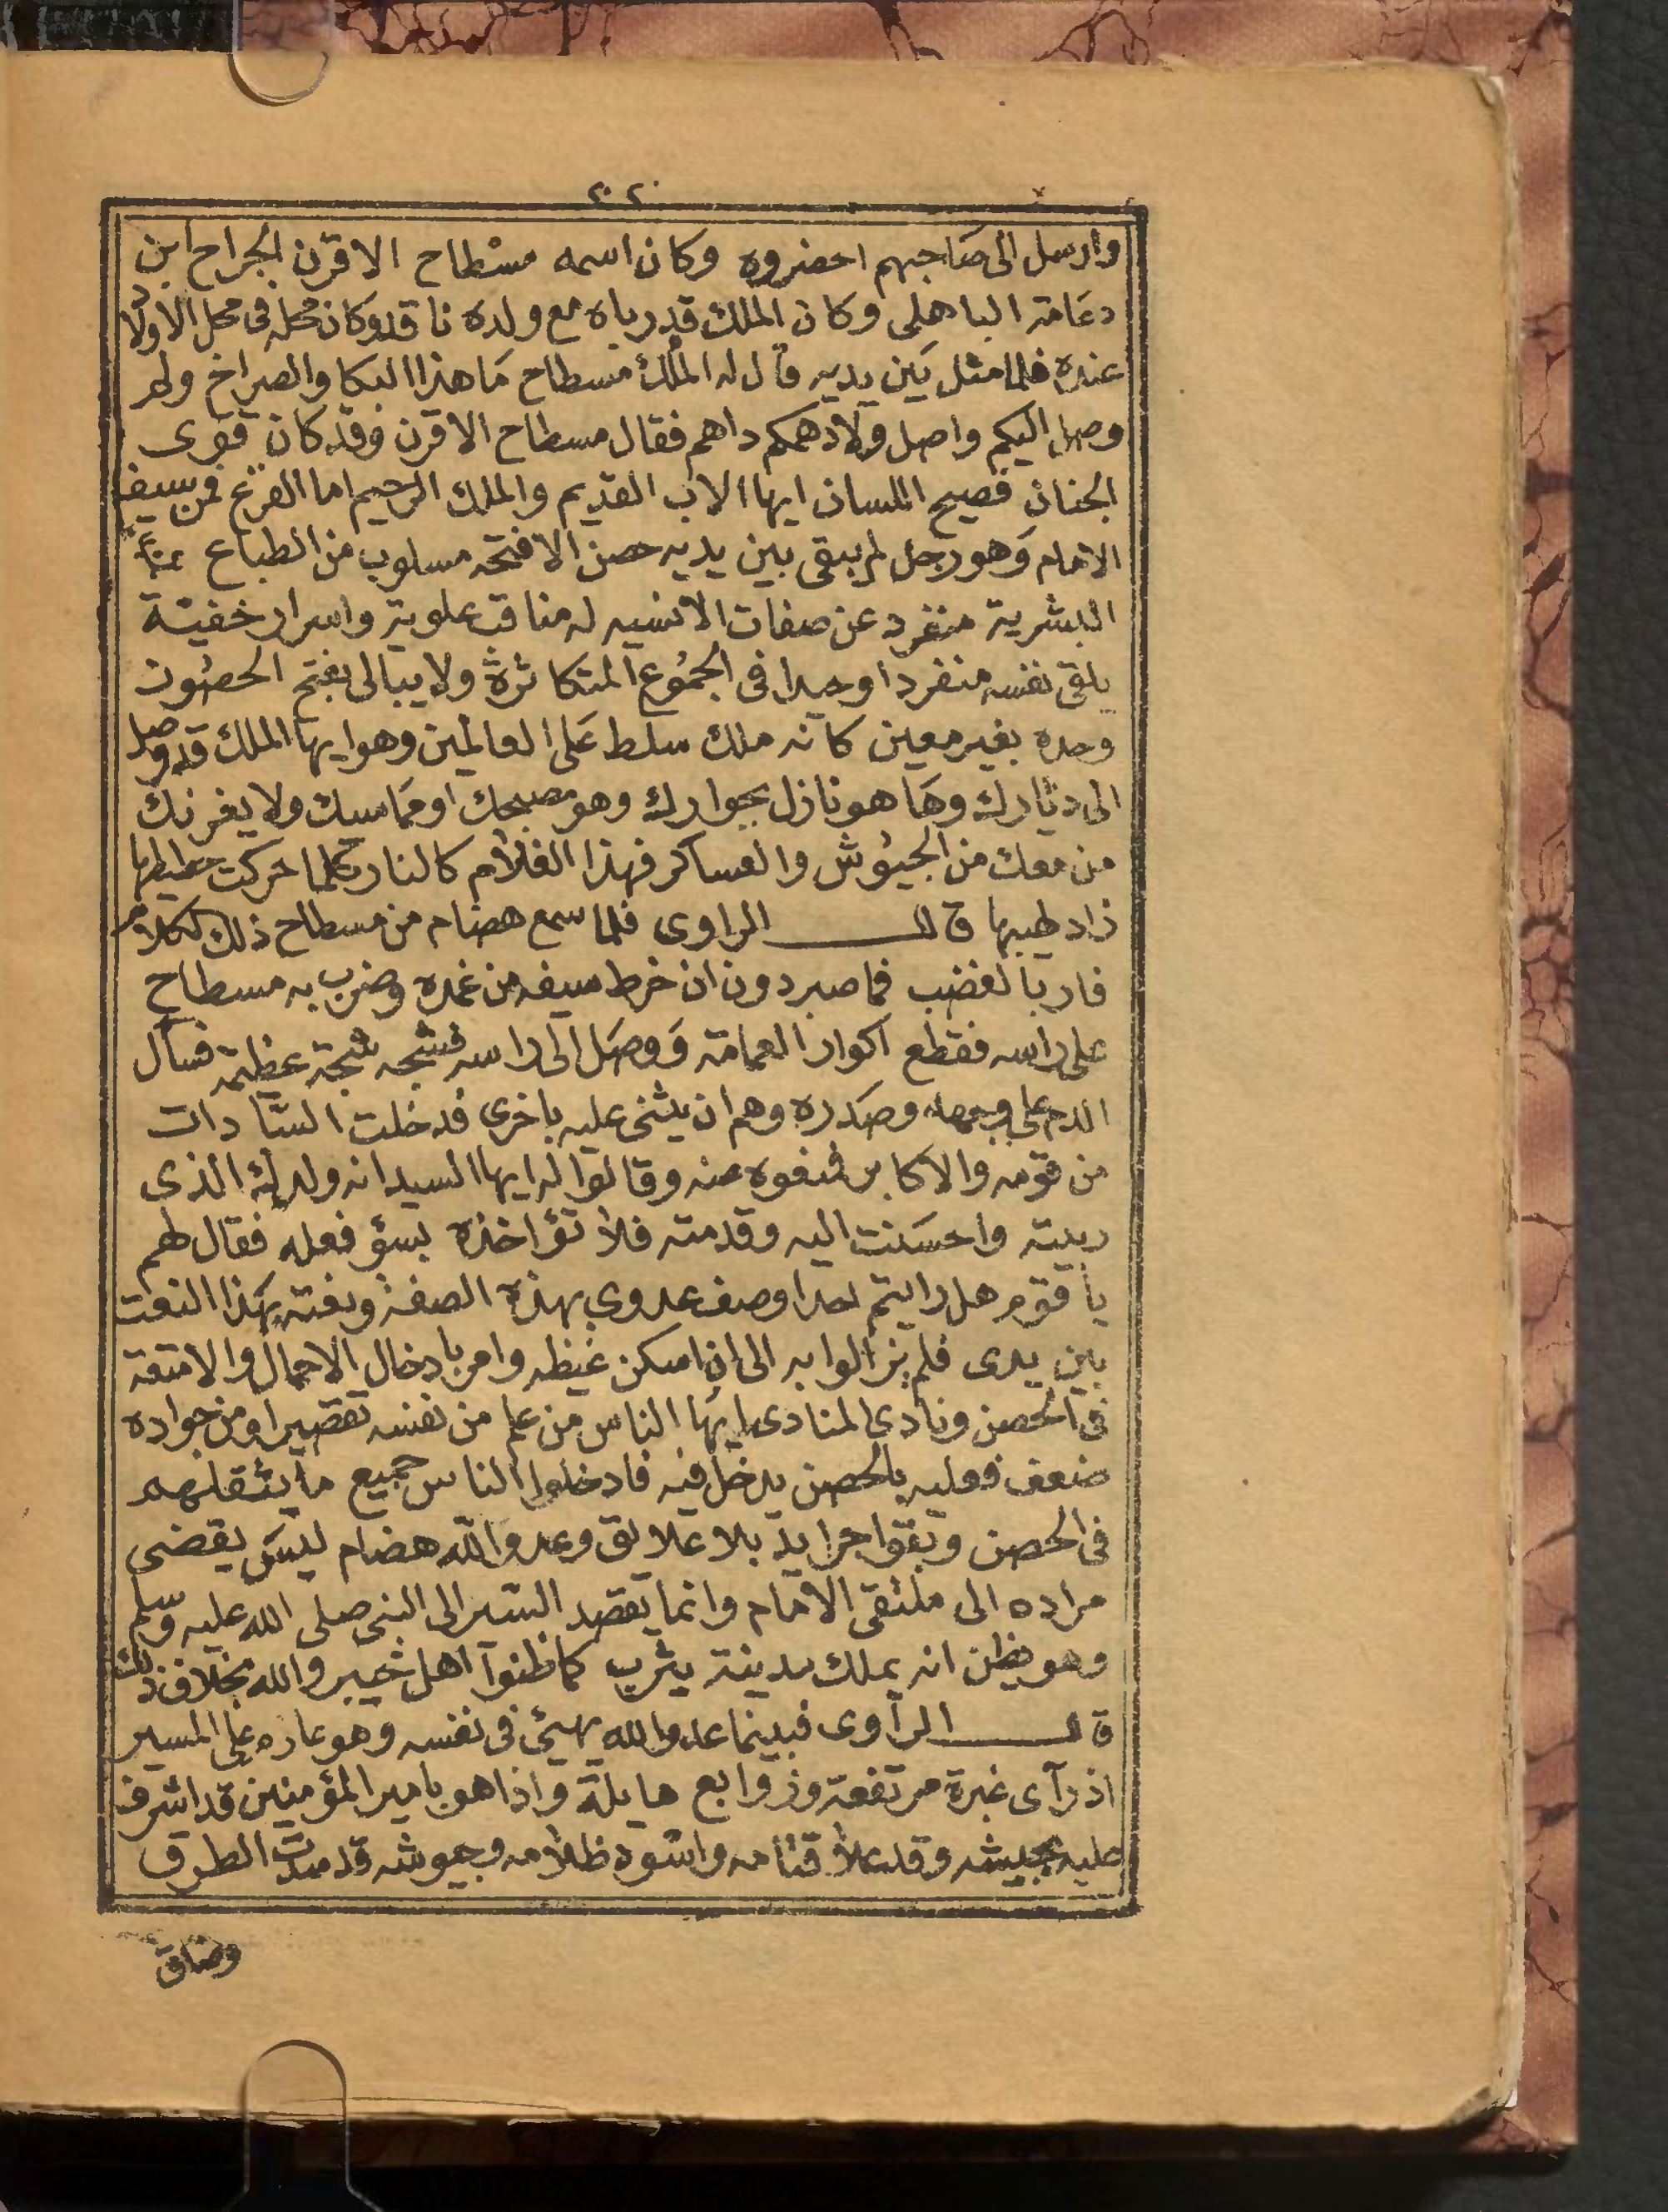 ٢٠٢
وارسل الى صاحبهم احضروه وكان اسمه مسطاح الاقرن الجراح ابن
دعامة الباهلى وكان الملك قد رباه مع ولده ناقد وكان محله فى محل الاولاد
عنده فلما مثل بين يديه قال له الملك مسطاح ما هذا البكا والصراخ ولم
وصل اليكم واصل ولا دهمكم داهم فقال مسطاح الاقرن وقد كان قوى
الجنان فصيح اللسان ايها الاب القديم والملك الرحيم اما الفزع فمن سيف
الامام وهو رجل لم يبقى بين يديه حصن الا فتحه مسلوب من الطباع
البشرية منفرد عن صفات الانسيه له مناقب علوية واسرار خفية
يلقى نفسه منفردا وحيدا فى الجموع المتكاثرة ولا يبالى بفتح الحصون
وحده بغير معين كانه ملك سلط على العالمين وهو ايها الملك قد وصل
الى ديارك وها هو نازل بجوارك وهو مصبحك او مماسيك ولا يغرنك
من معك من الجيوش والعساكر فهذا الغلام كالنار كلما حركت حطبها
زاد لهيبها قال الراوى فلما سمع هضام من مسطاح ذلك الكلام
فار بالغضب فما صبر دون ان خرط سيفه من غمده وضرب به مسطاح
على راسه فقطع اكوار العمامة ووصل الى راسه فشجه شجة عظيمة فسال
الدم على وجهه وصدره وهم ان يثنى عليه باخرى فدخلت السادات
من قومه والاكابر فمنعوه عنه وقالوا له ايها السيد انه ولدك الذى
ربيته واحسنت اليه وقدمته فلا تؤاخذه بسؤ فعله فقال لهم
يا قوم هل رايتم احدا وصف عدوى بهذه الصفة ونعته بهذا النعت
بين يدى فلم يزالوا به الى ان اسكن غيظه وامر بادخال الاحمال والامتعة
فى الحصن ونادى المنادى ايها الناس من علم من نفسه تقصيرا ومن جواده
ضعف فعليه بالحصن يدخل فيه فادخلوا الناس جميع ما يثقلهم
فى الحصن وبقوا جرايد بلا علايق وعدو الله هضام ليس يقضى
مراده الى ملتقى الامام وانما يقصد السير الى النبى صلى الله عليه وسلم
وهو يظن انه يملك مدينة يثرب كما ظنوا اهل خيبر والله بخلاف ذلك
قال الراوى فبينما عدو الله يهيئ فى نفسه وهو عاره على المسير
اذ رآى غبرة مرتفعة وزوابع هايلة واذا هو بامير المؤمنين قد اشرف
عليه بجيشه وقد علا قتامه واسود ظلامه وجيوشه قد سدت الطرق
وضاق